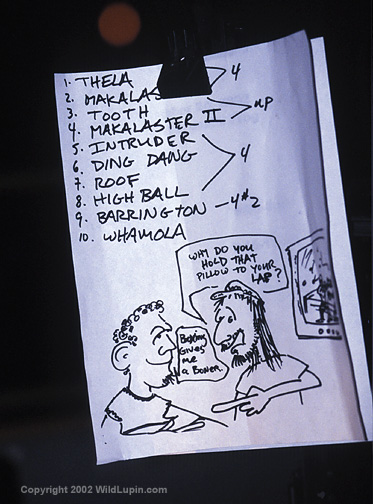 1. THELA
2. MAKALAS
3. TOOTH
4. MAKALASTER II
5. INTRUDER
6. DING DANG
7. ROOF
8. HIGH BALL
9. BARRINGTON - 4#2
10. WHAMOLA
4
up
4
WHY DO YOU
HOLD THAT
PILLOW TO YOUR
LAP?
Gives
me
a Boner.
Copyright 2002 WildLupin.com